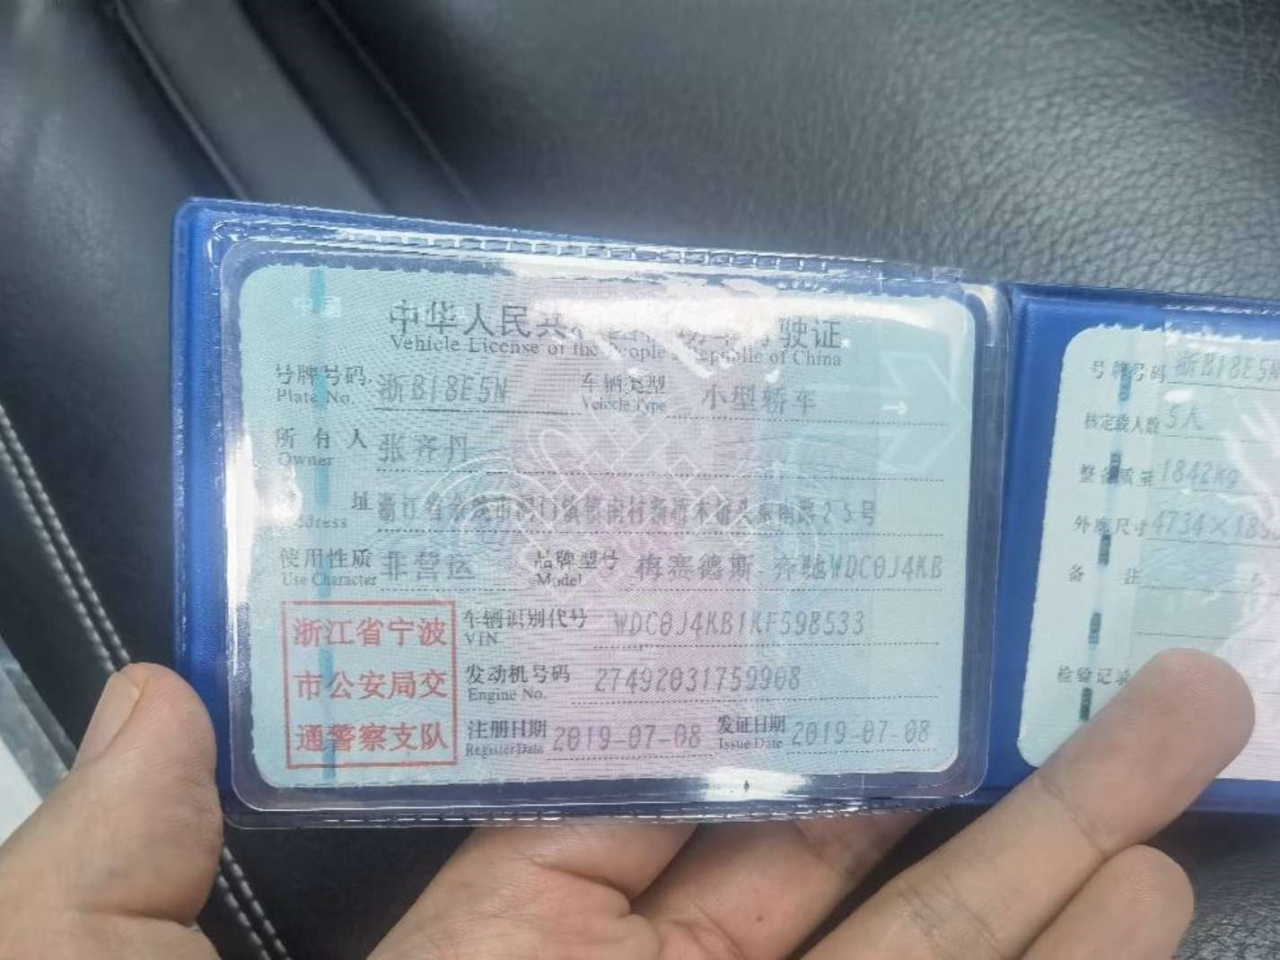 中华人民共
驶证
Vehicle License of the People's Republic of China
号牌号码 浙B18E5N 车辆类型 小型轿车
Plate No. Vehicle Type
所有人 张齐丹
Owner
址 浙江省 25号
Address
使用性质 非营运 品牌型号 梅赛德斯-奔驰WDC0J4KB
Use Character Model
浙江省宁波
市公安局交
通警察支队
车辆识别代号 WDC0J4KB1KF598533
VIN
发动机号码 27492031759908
Engine No.
注册日期 2019-07-08 发证日期 2019-07-08
Register Date Issue Date
号牌号码 浙B18E5N
核定载人数 5人
整备质量 1842kg
外廓尺寸 4734×18
备 注
检验记录